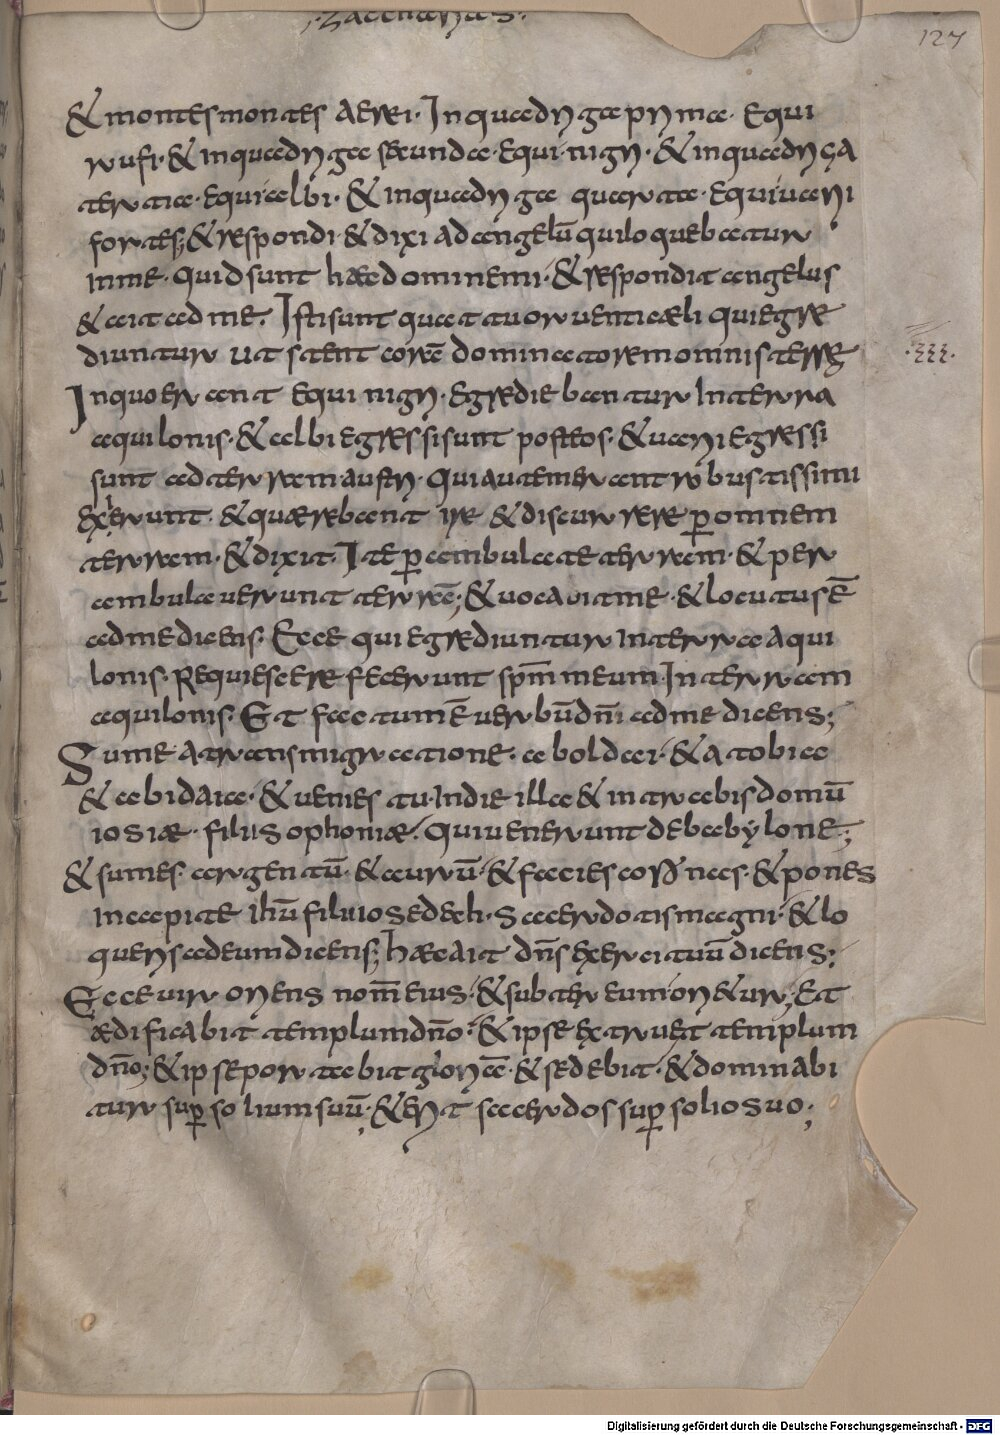 ·Zacharias·
127
& montes montes aerei· In quadriga prima· Equi
rufi· & in quadriga secunda· equi nigri· & in quadriga
tertia· equi albi· & in quadriga quarta· equi uarii
fortes; & respondi· & dixi ad angelū qui loquebatur
in me· quid sunt haec domine mi· & respondit angelus
& ait ad me· Isti sunt quattuor uenti caeli qui egre
diuntur ut stent corā dominatorem omnis terrę
In quo erant equi nigri· Egrediebantur In terra
aquilonis· & albi egressi sunt post eos· & uarii egressi
sunt ad terram austri· qui autem erant robustissimi
exierunt· & quaerebant ire & discurrere per omnem
terram· & dixit· Ite perambulate terram· & per
ambulauerunt terrā; & uocauit me· & locutus ē
ad me dicens· Ecce qui egrediuntur In terra aqui
lonis· Requiescere fecerunt spm̄ meum In terram
aquilonis· Et factum ē uerbū dn̄i ad me dicens;
Sume a transmigratione· ab oldai· & a tobia
& ab idaia· & uenies tu· In die illa & intrabis domū
iosiae· filii sophoniae· qui uenerunt de babylone;
& sumes· argentū· & aurū· & facies coronas· & pones
in capite ihū filii iosedech· sacerdotis magni· & lo
queris ad eum dicens; haec ait dn̄s exercituū dicens;
Ecce uir oriens nom̄ eius· & subter eum orietur; Et
aedificabit templum dn̄o· & ipse extruet templum
dn̄o; & ipse portabit gloriā· & sedebit· & dominabi
tur super solium suū· & erit sacerdos super solio suo;
Digitalisierung gefördert durch die Deutsche Forschungsgemeinschaft - DFG